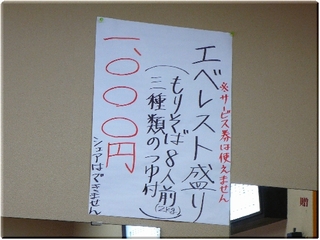 ※サービス券は使えません
エベレスト盛り
(もりそば8人前(2kg)
三種類のつゆ付)
一、〇〇〇円
シェアはできません
贈